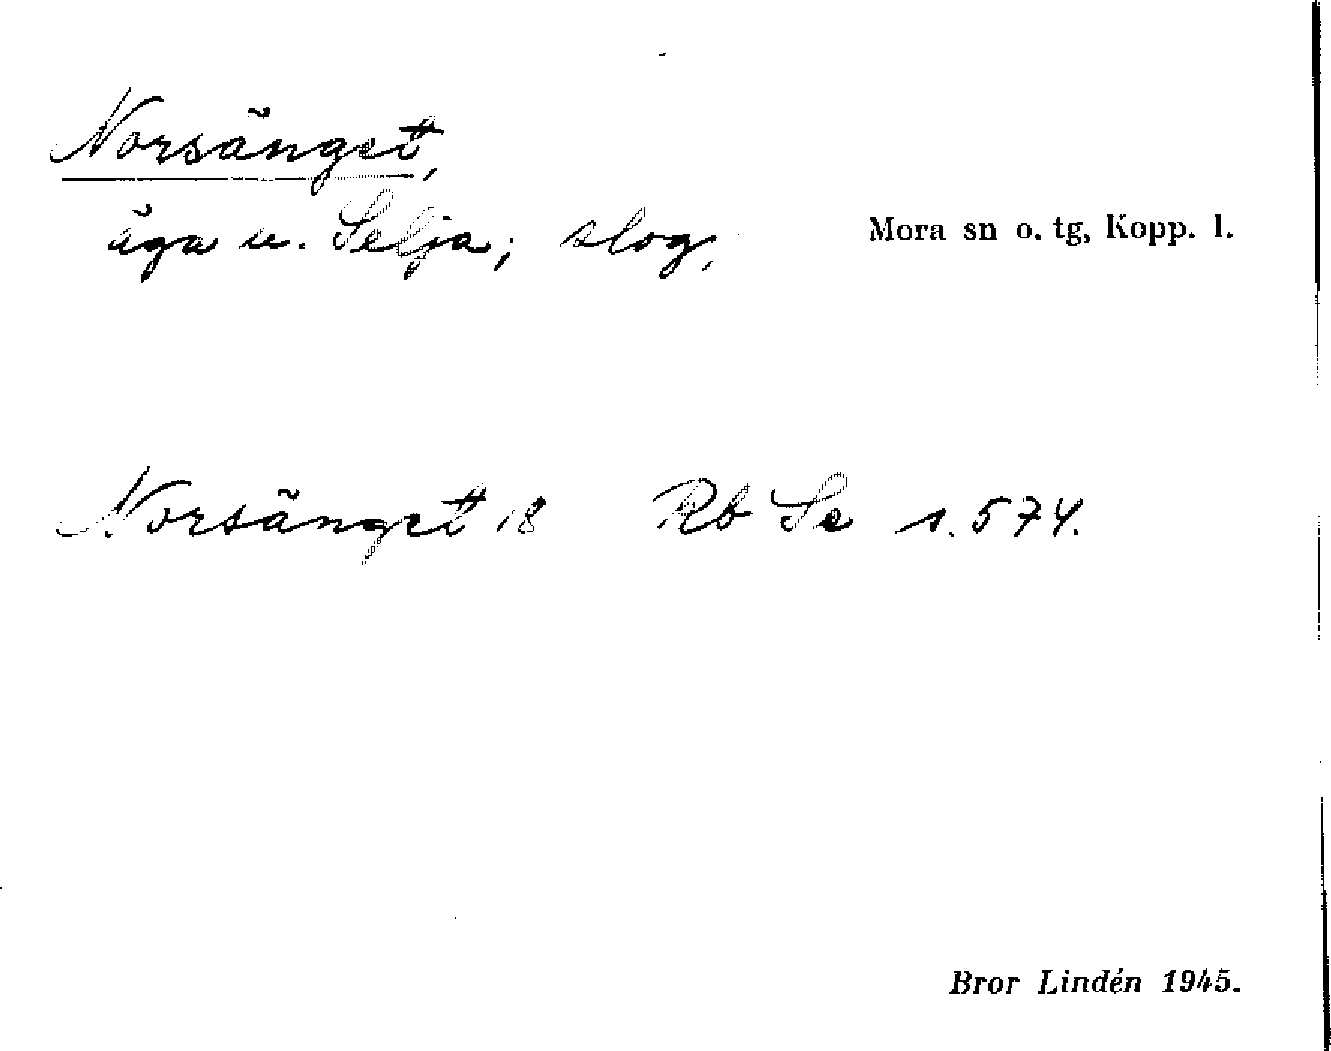 Norsänget,
äga u. Selja; slog,
Mora sn o. tg, Kopp. l.
Norsänget 18 Rb Se s. 574.
Bror Lindén 1945.